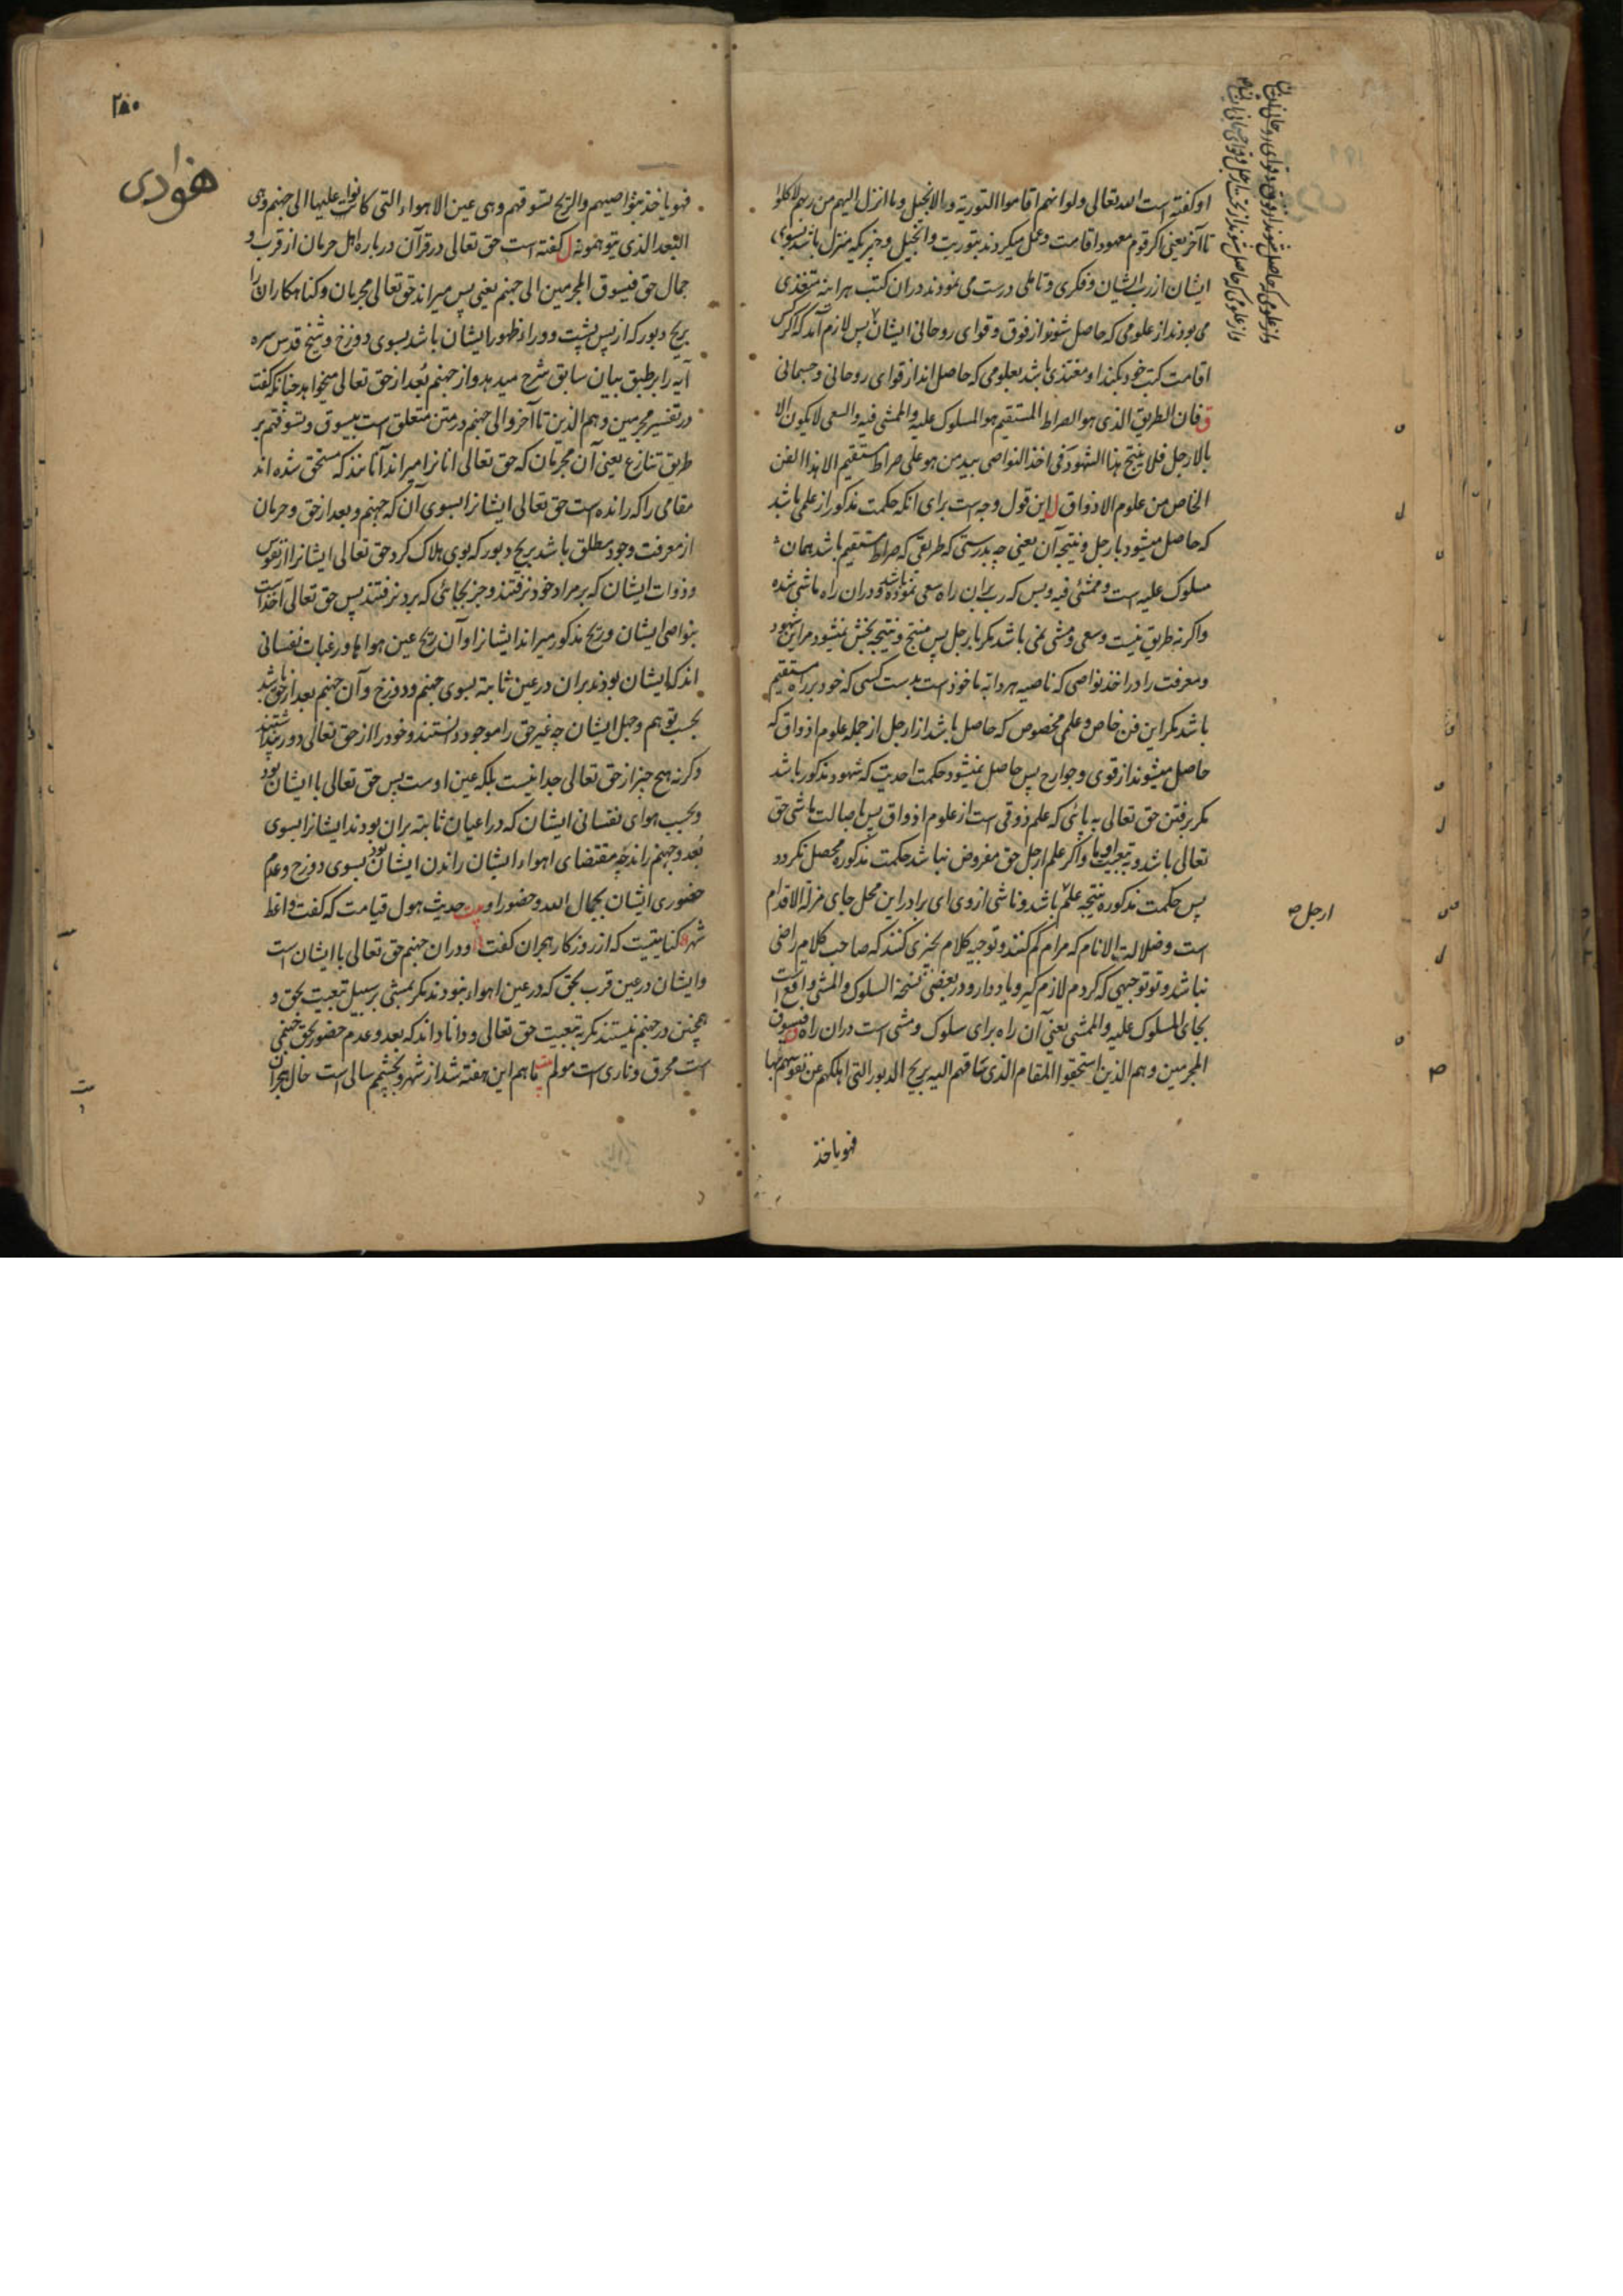 او گفته است الله تعالی ولو انهم اقاموا التوریة والانجیل وما انزل الیهم من ربهم لاکلوا
تا آخر یعنی اگر قوم معهود اقامت وعمل میکردند بتوریت وانجیل وچیزیکه منزل باشد بسوی
ایشان از رب ایشان وفکری وتاملی درست می نمودند دران کتب هراینه متغذی
می بودند از علومی که حاصل شوند از فوق وقوای روحانی ایشان پس لازم آمد که اگر کس
اقامت کتب خود بکند او مغتذی باشد بعلومی که حاصل اند از قوای روحانی وجسمانی
ق فان الطریق الذی هو الصراط المستقیم هو المسلوک علیه والمشی فیه والسعی لا یکون الا
بالارجل فلا ینتج هذا الشهود فی اخذ النواصی بید من هو علی صراط مستقیم الا هذا الفن
الخاص من علوم الاذواق ل این قول وجه است برای انکه حکمت مذکور از علمی باشد
که حاصل میشود بارجل ونتیجه آن یعنی چه بدرستی که طریقی که صراط مستقیم باشد همان
مسلوک علیه است وممشی فیه وبس که رب بران راه سعی نموده باشد ودران راه ماشی شده
واگرنه طریق نیست وسعی ومشی نمی باشد مگر بارجل پس منتج ونتیجه بخش نمیشود مراین شهود
ومعرفت را در اخذ نواصی که ناصیه هر دابه ماخوذ است بدست کسی که خود بر راه مستقیم
باشد مگر این فن خاص وعلمی مخصوص که حاصل باشد از ارجل از جمله علوم اذواق که
حاصل میشوند از قوی وجوارح پس حاصل نمیشود حکمت احدیت که شهود مذکور باشد
مگر برفتن حق تعالی به پائی که علم ذوقی است از علوم اذواق پس باصالت ماشی حق
تعالی باشد وبه تبعیت او ما واگر علم ارجل حق مفروض نباشد حکمت مذکوره محصل نگردد
پس حکمت مذکوره نتیجه علم باشد وناشی از وی ای برادر این محل جای مزلة الاقدام
است وضلالت الانام که مرام گم کنند وتوجیه کلام بچیزی کنند که صاحب کلام راضی
نباشد وتو توجیهی که کردم لازم گیر ویاد دار ودر بعضی نسخه السلوک والمشی واقع است
بجای المسلوک علیه والممشی یعنی آن راه برای سلوک ومشی است دران راه ق فیسوق
المجرمین وهم الذین استحقوا المقام الذی ساقهم الیه بریح الدبور التی اهلکهم عن نفوسهم بها
فهو یاخذ
واز علومی که حاصل شوند از فوق وقوای روحانی ایشان
واز علومی که حاصل شوند از تحت ارجل وقوای جسمانی ایشان
ارجل صح
۲۸۰
هوادی
فهو یاخذ بنواصیهم والریح تسوقهم وهی عین الاهواء التی کانوا علیها الی جهنم وهی
البعد الذی یتوهمونه ل گفته است حق تعالی در قرآن درباره اهل حرمان از قرب و
جمال حق فیسوق المجرمین الی جهنم یعنی پس میراند حق تعالی مجرمان وگناهکاران را
بریح دبور که از پس پشت ووراء ظهور ایشان باشد بسوی دوزخ وشیخ قدس سره
آیه را بر طبق بیان سابق شرح میدهد واز جهنم بُعد از حق تعالی میخواهد چنانکه گفت
در تفسیر مجرمین وهم الذین تا آخر والی جهنم در متن متعلق است بیسوق وتسوقهم بر
طریق تنازع یعنی آن مجرمان که حق تعالی انانرا میراند آنانند که مستحق شده اند
مقامی را که رانده است حق تعالی ایشانرا بسوی آن که جهنم وبعد از حق وحرمان
از معرفت وجود مطلق باشد بریح دبور که بوی هلاک کرد حق تعالی ایشانرا از نفوس
وذوات ایشان که بر مراد خود نرفتند وجز بجائی که برد نرفتند پس حق تعالی آخذ است
بنواصی ایشان وریح مذکور میراند ایشانرا وآن ریح عین هواها ورغبات نفسانی
اند که ایشان بودند بران در عین ثابته بسوی جهنم ودوزخ وآن جهنم بعد از حق باشد
بحسب توهم وجهل ایشان چه غیر حق را موجود دانستند وخود را از حق تعالی دور پنداشتند
وگرنه هیچ چیز از حق تعالی جدا نیست بلکه عین اوست پس حق تعالی با ایشان بود
وبحسب هوای نفسانی ایشان که در اعیان ثابته بران بودند ایشانرا بسوی
بُعد وجهنم راند چه مقتضای اهواء ایشان راندن ایشان بود بسوی دوزخ وعدم
حضوری ایشان بجمال الله وحضور او بیت حدیث هول قیامت که گفت واعظ
شهر کنایتیست که از روزگار هجران گفت ودران جهنم حق تعالی با ایشان است
وایشان در عین قرب بحق که در عین اهواء نبودند مگر بمشی بر سبیل تبعیت بحق و
همچنین در جهنم نیستند مگر به تبعیت حق تعالی ودانا داند که بعد وعدم حضور بحق جهنمی
است محرق وناری است مولم بیت ماهم این هفته شد از شهر وبچشمم سالی است حال هجران